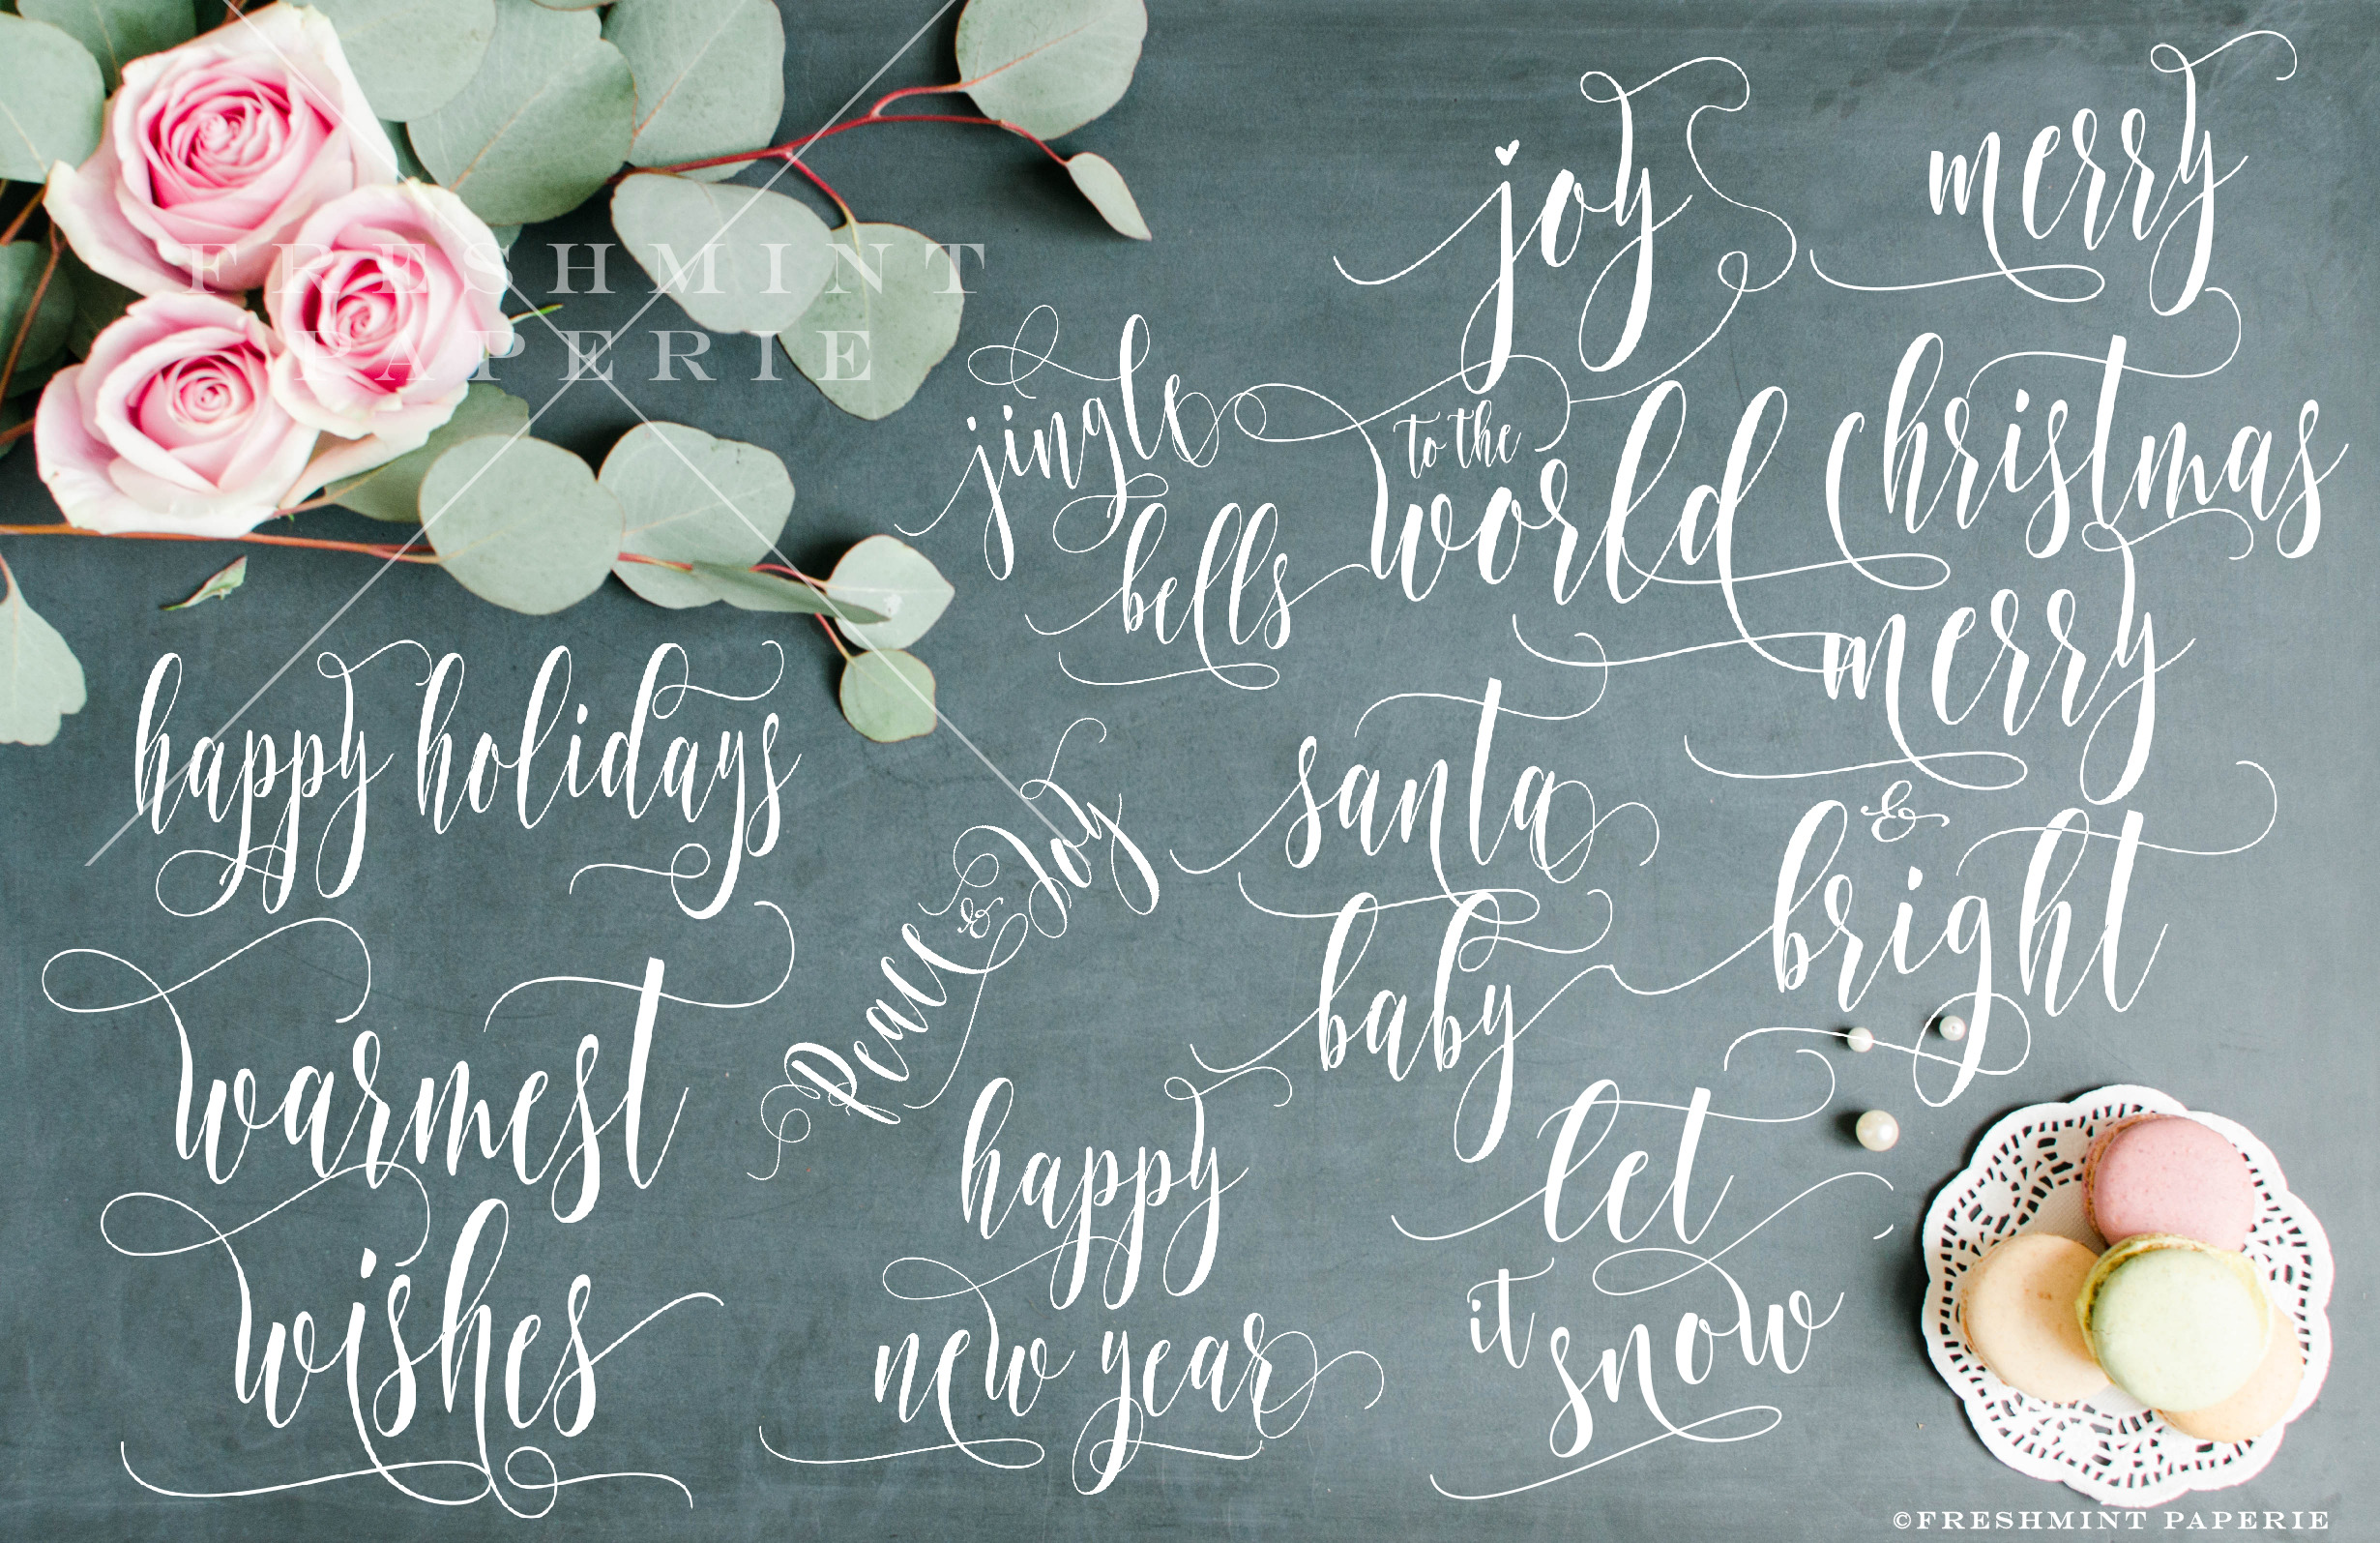 FRESHMINT
PAPERIE
joy
to the
world
merry
christmas
jingle
bells
merry
&
bright
happy holidays
santa
baby
Peace & Joy
warmest
wishes
happy
new year
let
it snow
©FRESHMINT PAPERIE